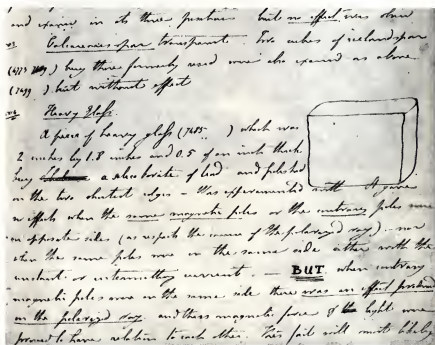 and examined in its three positions but no effect was observed
Calcareous spar transparent. Two cubes of iceland spar
(6773 ) being those formerly used were also examined as above
(7499 ) but without effect
Heavy Glass.
A piece of heavy glass (7485. ) which was
2 inches by 1.8 inches and 0.5 of an inch thick
being a silico borate of lead and polished
on the two shortest edges - Was experimented with It gave
no effects when the same magnetic poles or the contrary poles were
on opposite sides (as respects the course of the polarized ray) - nor
when the same poles were on the same side either with the
constant or intermitting current. - BUT, when contrary
magnetic poles were on the same side there was an effect produced
on the polarized ray, and thus magnetic force and light were
proved to have relation to each other. This fact will most likely